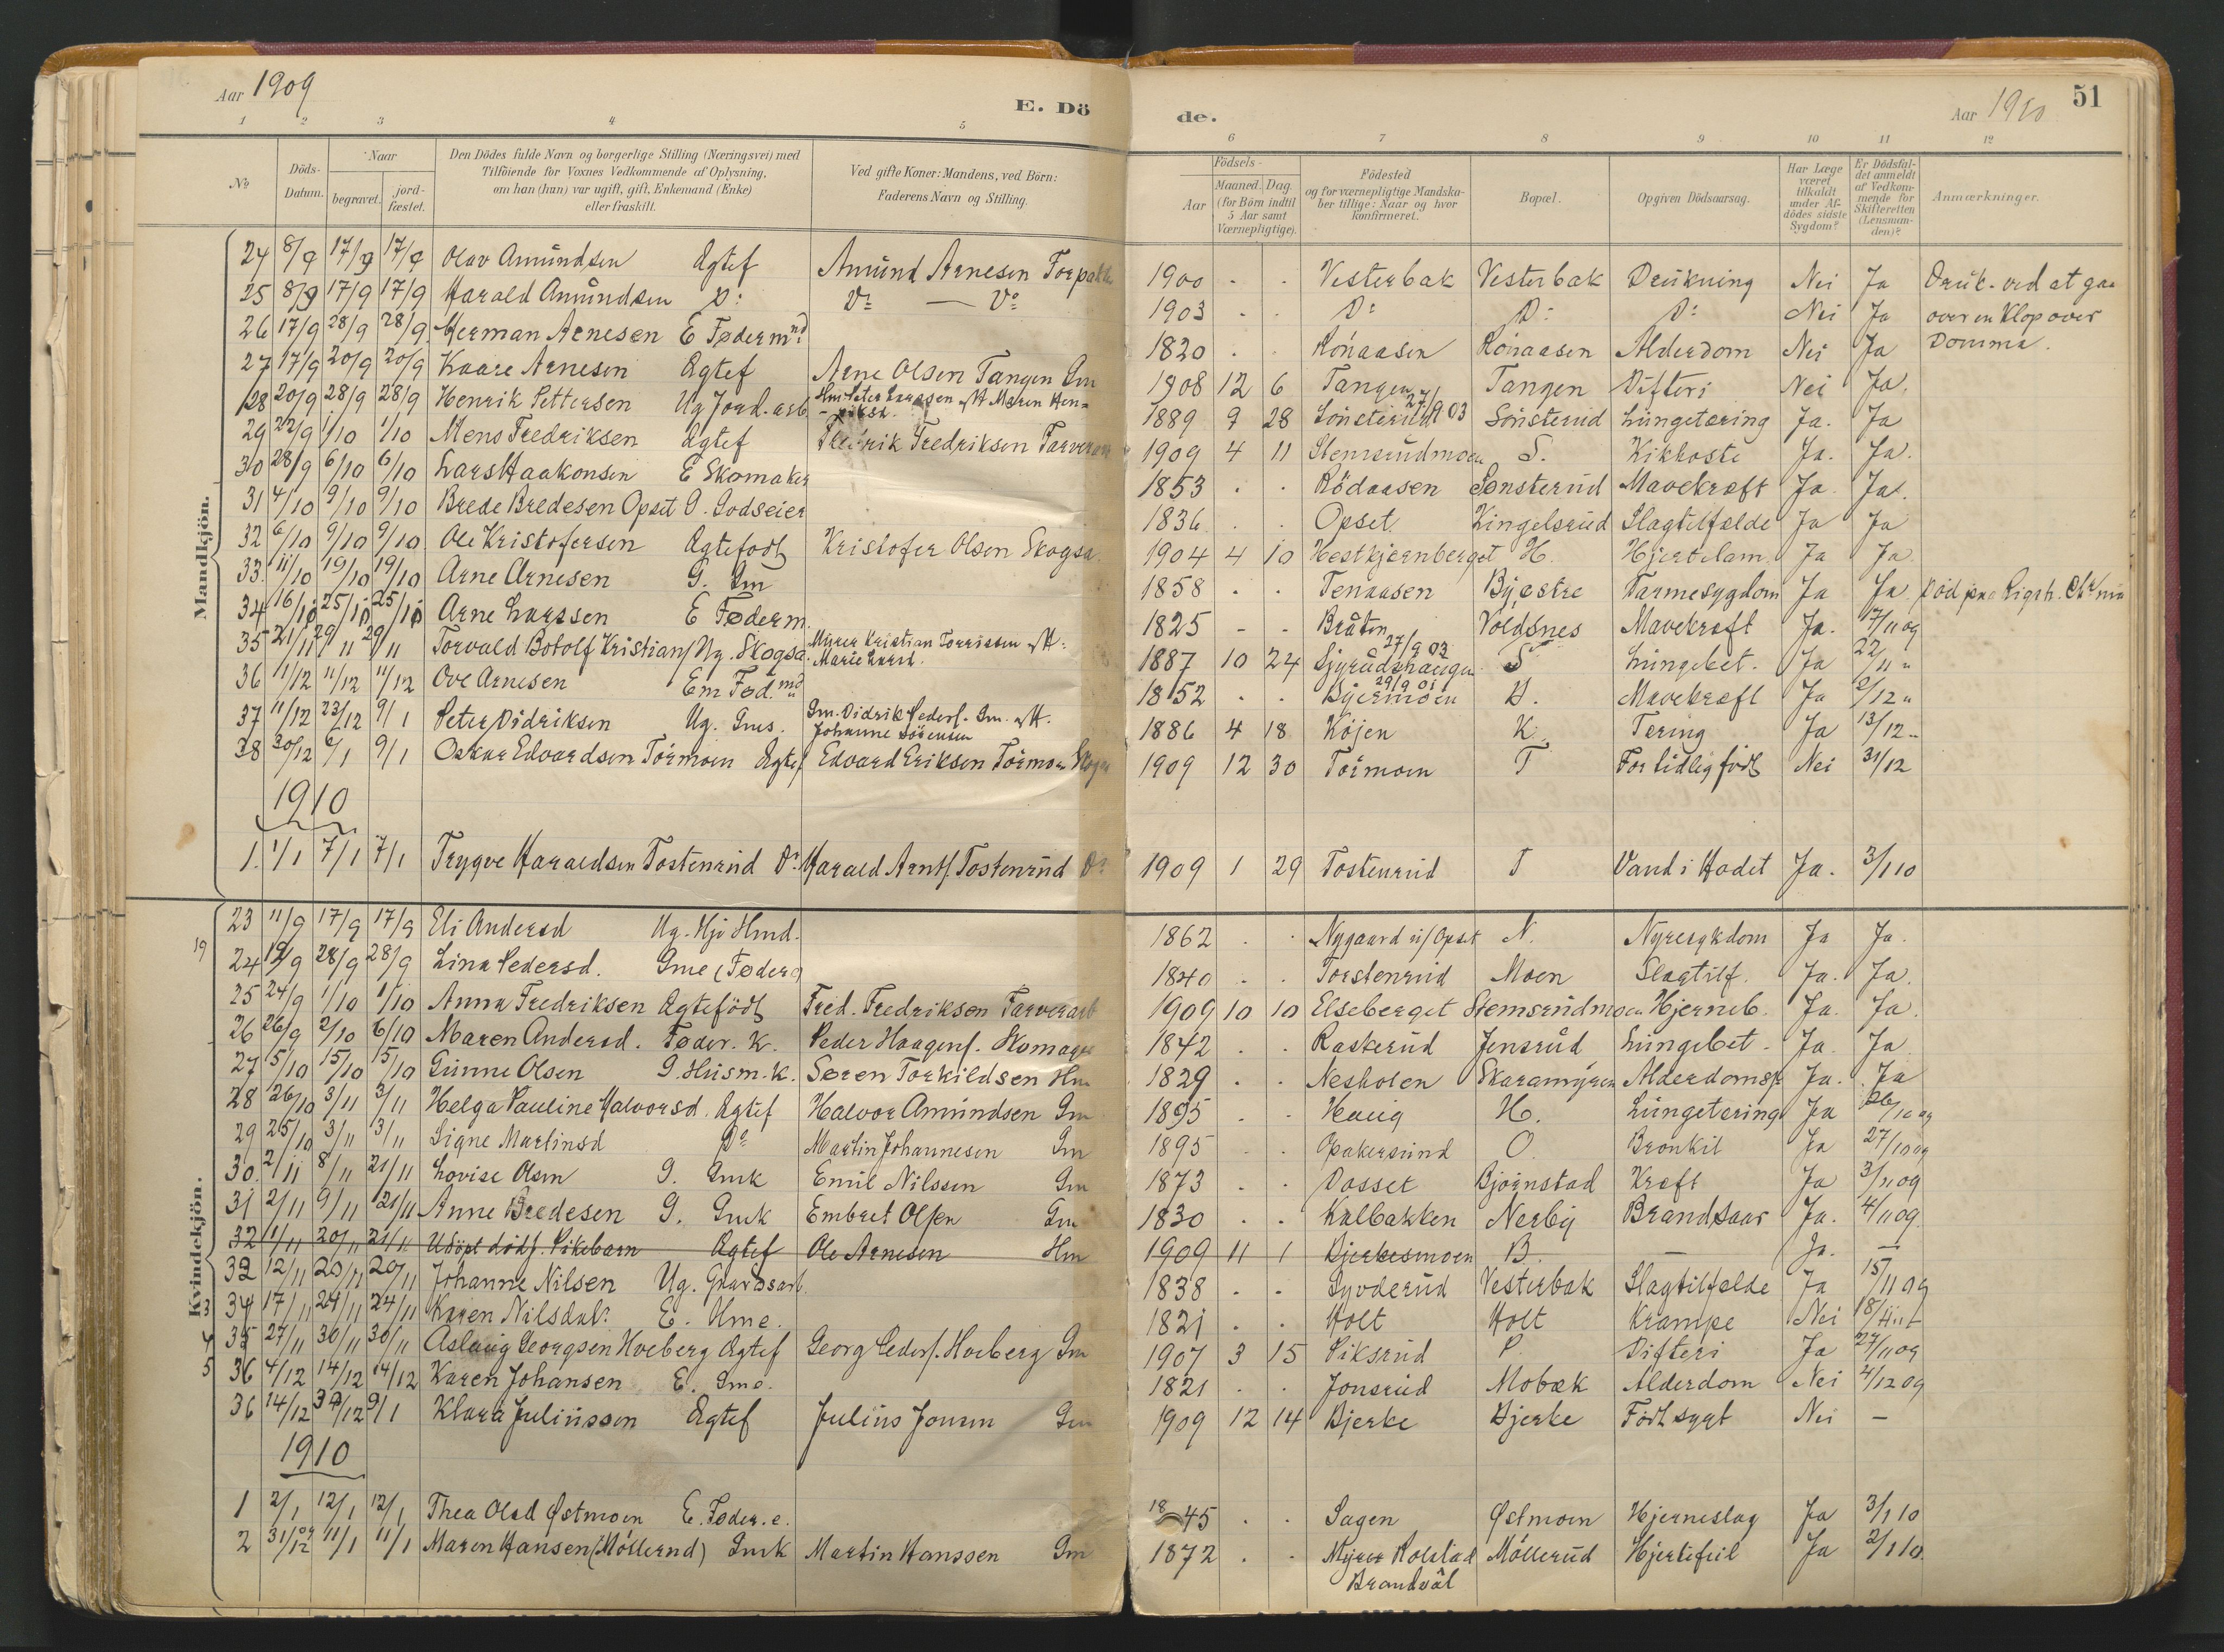 Aar 1909
E. Dö
de.
Aar 1910
51
1 2 3 4 5 6 7 8 9 10 11 12
No
Döds-Datum.
Naar
begravet.
jord-fæstet.
Den Dödes fulde Navn og borgerlige Stilling (Næringsvei) med
Tilföiende for Voxnes Vedkommende af Oplysning,
om han (hun) var ugift, gift, Enkemand (Enke)
eller fraskilt.
Ved gifte Koner: Mandens, ved Börn:
Faderens Navn og Stilling.
Födsels-
Aar
Maaned. Dag.
(for Börn indtil
5 Aar samt
Værnepligtige).
Födested
og for værnepligtige Mandska-
ber tillige: Naar og hvor
konfirmeret.
Bopæl.
Opgiven Dödsaarsag.
Har Læge
været
tilkaldt
under Af-
dödes sidste
Sygdom?
Er Dödsfal-
det anmeldt
af Vedkom-
mende for
Skifteretten
(Lensman-
den)?
Anmærkninger.
Mandkjön.
24 8/9 17/9 17/9 Olav Amundsen Ægtef Amund Arnesen Torpakk 1900 . . Vesterbak Vesterbak Drukning Nei Ja Druk. ved at gaa
25 8/9 17/9 17/9 Harald Amundsen Do Do — Do 1903 . . Do Do Do Nei Ja over en Klop over
26 17/9 28/9 28/9 Herman Arnesen EFødermnd 1820 . . Rönaasen Rönaasen Alderdom Nei Ja Domma.
27 17/9 20/9 20/9 Kaare Arnesen Ægtef Arne Olsen Tangen Gm 1908 12 6 Tangen Tangen Difteri Nei Ja.
28 20/9 28/9 28/9 Henrik Pettersen Ug Jord.arb. Hm Peter Larssen og H Maren Hen- 1889 9 28 Sönsterud 27/9 03 Sönsterud Lungetæring Ja. Ja
29 22/9 1/10 1/10 Mens Fredriksen Ægtef Fredrik Fredriksen Tarverarb 1909 4 11 Stemsrudmoen S. Kikhoste Ja. Ja.
30 28/9 6/10 6/10 Lars Haakonsen E Skomaker 1853 . . Rödaasen Sønsterud Mavekræft Ja. Ja.
31 4/10 9/10 9/10 Brede Bredesen Opset G. Godseier 1836 . . Opset Kingelsrud Slagtilfælde Ja Ja
32 6/10 9/10 9/10 Ole Kristofersen Ægtefødt Kristofer Olsen Skogsa. 1904 4 10 Hestkjernberget H. Hjertelam. Ja Ja.
33. 11/10 19/10 19/10 Arne Arnesen G. Gm 1858 . . Tenaasen Byestre Tarmesygdom Ja Ja
34 16/10 25/10 25/10 Arne Larssen E Føderm. 1825 - - Bråten Voldsnes Mavekræft Ja. 17/11 09
35 21/11 29/11 29/11 Torvald Botolf Kristians/ Ug. Skogsa. Myrer Kristian Torrissen og H. Marie Larsd. 1887 10 24 27/9 03 S Lungebet. Ja 22/11 "
36 11/12 11/12 11/12 Ove Arnesen Em Fød.mnd 1852 . . 29/9 01 Bjermoen B. Mavekræft Ja 2/12 "
37 11/12 23/12 9/1 Peter Didriksen Ug. Gms. Gm. Didrik Peders. Gm. og H. Johanne Sörensen 1886 4 18 Köjen K. Tæring Ja 13/12 "
38 30/12 6/1 9/1 Oskar Edvardsen Törmoen Ægtef Edvard Eriksen Törmoen Skogsa 1909 12 30 Törmoen T For tidlig født Nei 31/12
1910
1. 1/1 7/1 7/1 Trygve Haraldsen Tostenrud Do Harald Arnts. Tostenrud Do 1909 1 29 Tostenrud T Vand i Hodet Ja. 3/1 10
Kvindekjön.
23 11/9 17/9 17/9 Eli Andersd Ug. Hjv Hmd. 1862 . . Nygaard u/ Opset N. Nyresykdom Ja Ja.
24 19/9 28/9 28/9 Lina Pedersd. Gme (Føderg 1840 . . Torstenrud Moen Slagtilf. Ja. Ja.
25 24/9 1/10 1/10 Anna Fredriksen Ægtefödt Fred. Fredriksen Tarverarb 1909 10 10 Elseberget Stemsrudmoen Hjerneb. Ja. Ja.
26 26/9 2/10 6/10 Maren Andersd. Føder. K. Peder Haagens. Skomager 1842 . . Raskerud Jensrud Lungebet. Ja. Ja
27 5/10 15/10 15/10 Gunne Olsen G. Husm.k. Søren Torkildsen Hm 1829 . . Nesholen Skaramyren Alderdomsf. Ja. Ja
28 26/10 3/11 3/11 Helga Pauline Halvorsd. Ægtef Halvor Amundsen Gm 1895 . . Haug H. Lungetæring Ja 26/10 09
29 25/10 3/11 3/11 Signe Martinsd Do Martin Johannesen Gm 1895 . . Opakersund O. Bronkit Ja 27/10 09
30. 2/11 8/11 21/11 Lovise Olsen G. Gmk Emil Nilssen Gm 1873 . . Dosset Bjørnstad Kræft Ja 3/11 09
31 2/11 9/11 21/11 Anne Bredesen G. Gmk Embret Olsen Gm 1830 . . Kalbakken Nerby Brandsaar Ja. 4/11 09
32 1/11 20/11 21/11 Udöpt dödf. Pikebarn Ægtef Ole Arnesen Hm 1909 11 1 Bjerkesmoen B. — Ja. —
32 12/11 20/11 20/11 Johanne Nilsen Ug. Gaardsarb. 1838 . . Lyvderud Vesterbak Slagtilfælde Ja 15/11 09
34 17/11 24/11 24/11 Karen Nilsdatr. E. Hme. 1821 . . Holt Holt Krampe Nei 18/11
35 27/11 30/11 30/11 Aslaug Georgsen Hveberg Ægtef Georg Peders. Hveberg Gm 1907 3 15 Piksrud P. Difteri Ja 27/11 09
36 4/12 14/12 14/12 Karen Johansen E. Gme. 1821 . . Jonsrud Mobæk Alderdom Nei 4/12 09
36 14/12 30/12 9/1 Klara Juliussen Ægtef Julius Jonsen Gm 1909 12 14 Bjerke Bjerke Födt sygt Nei —
1910
1 2/1 12/1 12/1 Thea Olsd Østmoen E. Føder.e. 1845 . . Sagen Østmoen Hjerneslag Ja 3/1 10
2 31/12 09 11/1 11/1 Maren Hansen (Möllerud) Gmk Martin Hanssen Gm 1872 . . Myrer Rolstad Möllerud Hjertefeil Ja 2/1 10
Brandvål